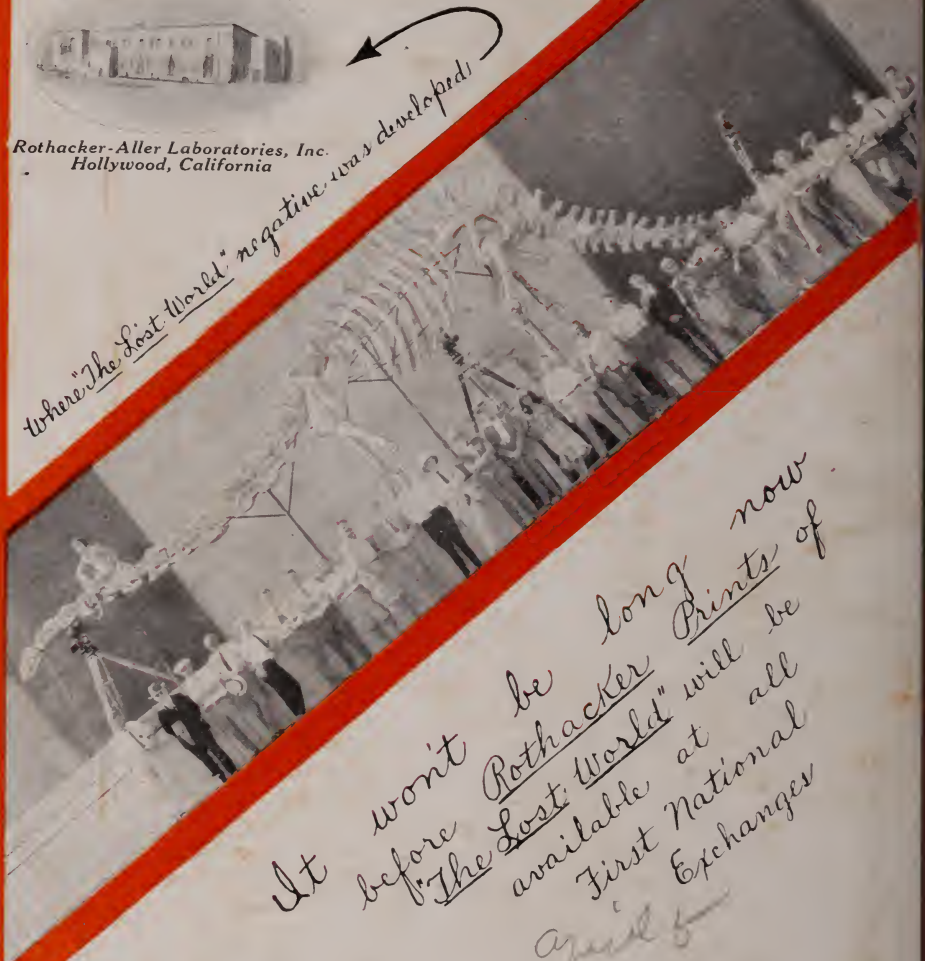 Rothacker-Aller Laboratories, Inc.
Hollywood, California
where "The Lost World" negative was developed
It won't be long now
before Rothacker Prints of
"The Lost World" will be
available at all
First National
Exchanges